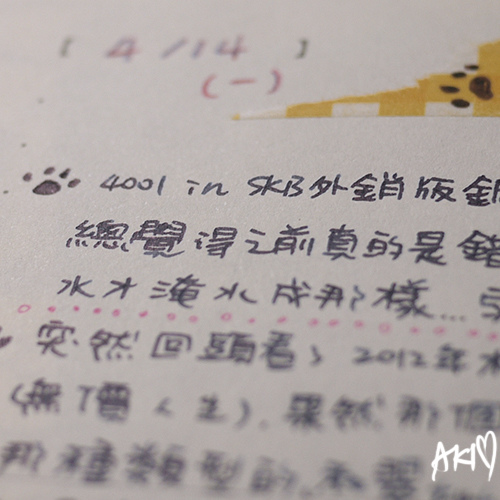 [ 4/14 ]
(一)
4001 in SKB外銷版鋼
總覺得之前真的是錯
水才淹水成那樣...
突然回頭看了 2012年
(無價人生). 果然那個
那種類型的.不要
AKI♡